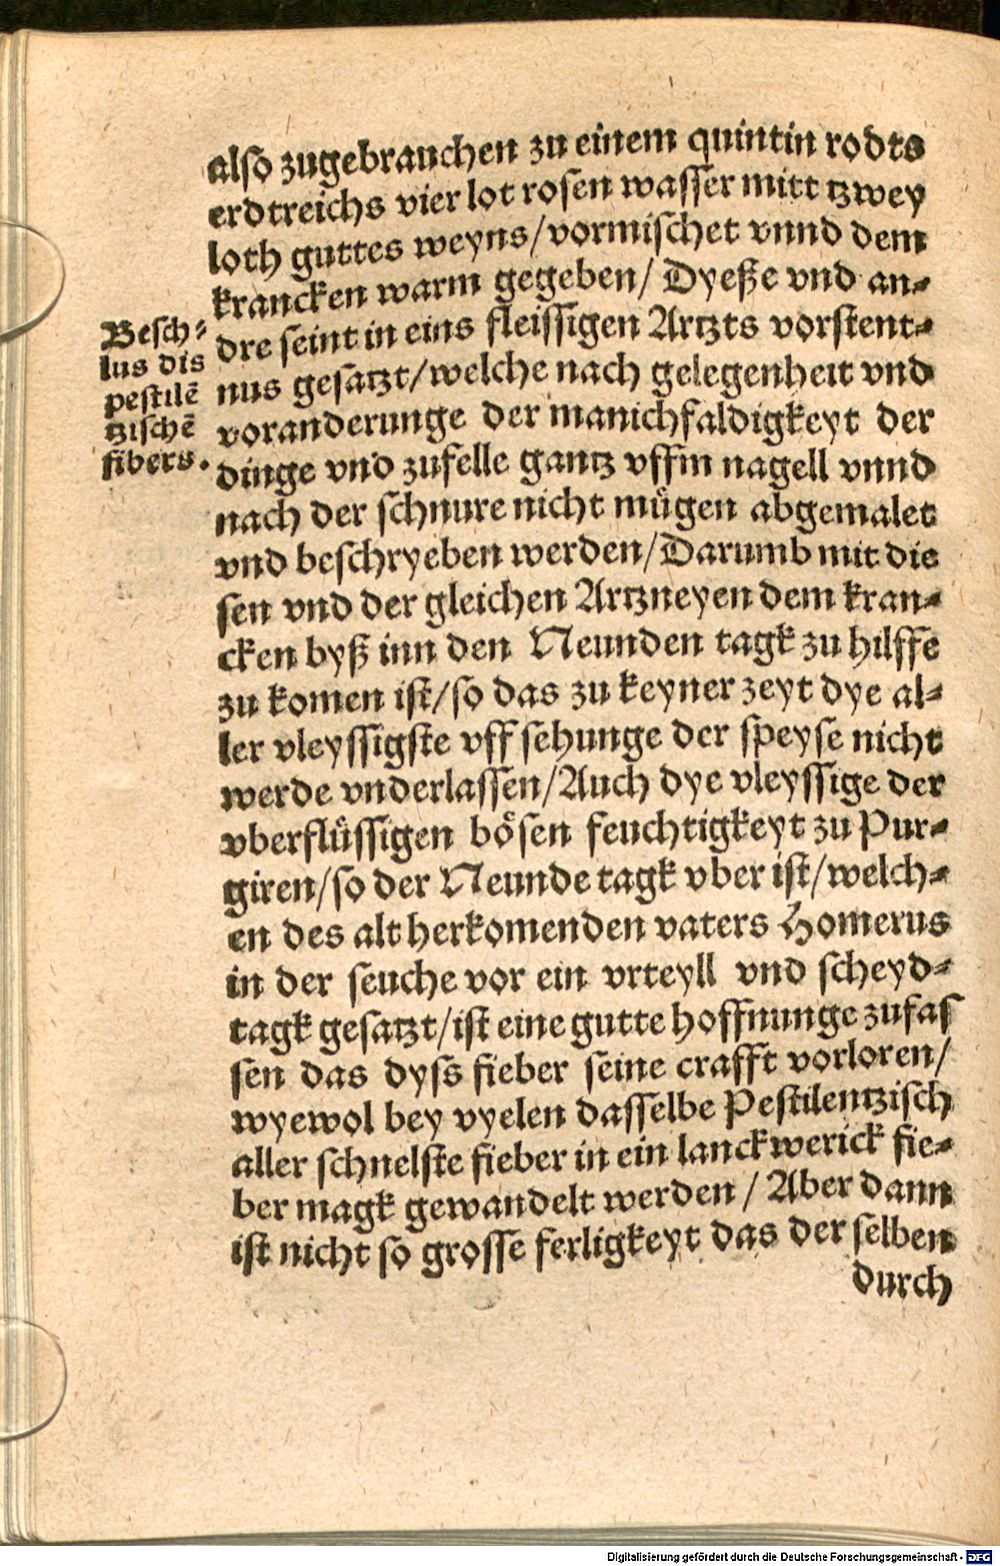 also zugebrauchen zu einem quintin rodts
erdtreichs vier lot rosen wasser mitt tzwey
loth guttes weyns/vormischet vnnd dem
krancken warm gegeben/ Dyeße vnd an⸗
dre seint in eins fleissigen Artzts vorstent⸗
nus gesatzt/welche nach gelegenheit vnd
voranderunge der manichfaldigkeyt der
dinge vnd zufelle gantz vffm nagell vnnd
nach der schnure nicht mügen abgemalet
vnd beschryeben werden/Darumb mit die
sen vnd der gleichen Artzneyen dem kran⸗
cken byß inn den Neunden tagk zu hilffe
zu komen ist/so das zu keyner zeyt dye al⸗
ler vleyssigste vff sehunge der speyse nicht
werde vnderlassen/Auch dye vleyssige der
vberflüssigen bösen feuchtigkeyt zu Pur⸗
giren/so der Neunde tagk vber ist/welch⸗
en des alt herkomenden vaters Homerus
in der seuche vor ein vrteyll vnd scheyd⸗
tagk gesatzt/ist eine gutte hoffnunge zufas
sen das dyss fieber seine crafft vorloren/
wyewol bey vyelen dasselbe Pestilentzisch
aller schnelste fieber in ein lanckwerick fie⸗
ber magk gewandelt werden / Aber dann
ist nicht so grosse ferligkeyt das der selben
durch
Besch⸗
lus dis
pestilē
tzischē
fibers.
Digitalisierung gefördert durch die Deutsche Forschungsgemeinschaft - DFG